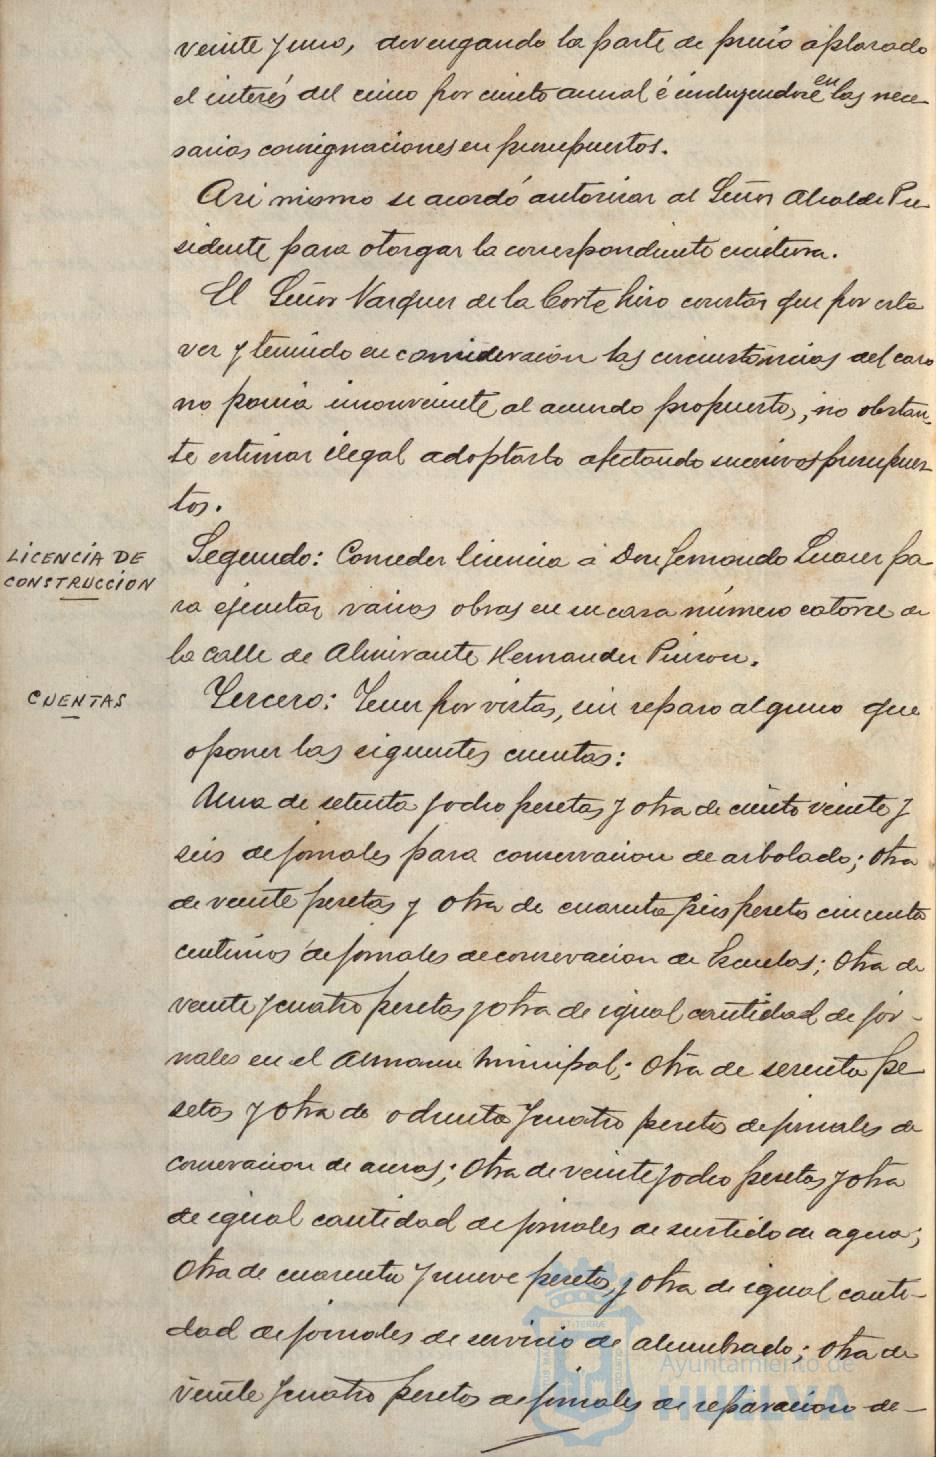 veinte y uno, devengando la parte de precio aplazado
el interés del cinco por ciento anual é incluyendose en las nece-
sarias consignaciones en presupuestos.
Asi mismo se acordó autorizar al Señor Alcalde Pre-
sidente para otorgar la correspondiente escritura.
El Señor Vazquez de la Corte hizo constar que por esta
vez y teniendo en consideracion las circunstancias del caso
no ponia inconveniente al acuerdo propuesto, no obstan-
te estimar ilegal adoptarlo afectando sucesivos presupues-
tos.
LICENCIA DE
CONSTRUCCION
Segundo: Conceder licencia á Don Fernando Suarez pa-
ra ejecutar varias obras en su casa número catorce de
la calle de Almirante Hernandez Pinzon.
CUENTAS
Tercero: Tener por vistas, sin reparo alguno que
oponer las siguientes cuentas:
Una de setenta y ocho pesetas y otra de ciento veinte y
seis de jornales para conservacion de arbolado; otra
de veinte pesetas y otra de cuarenta y seis pesetas cincuenta
centimos de jornales de conservacion de Escuelas; otra de
veinte y cuatro pesetas y otra de igual cantidad de jor-
nales en el Almacen Municipal; otra de sesenta pe
setas y otra de ochenta y cuatro pesetas de jornales de
conservacion de aceras; otra de veinte y ocho pesetas y otra
de igual cantidad de jornales de surtido de agua;
otra de cuarenta y nueve pesetas y otra de igual canti-
dad de jornales de servicio de alumbrado; otra de
veinte y cuatro pesetas de jornales de reparacion de-
Ayuntamiento de
HUELVA